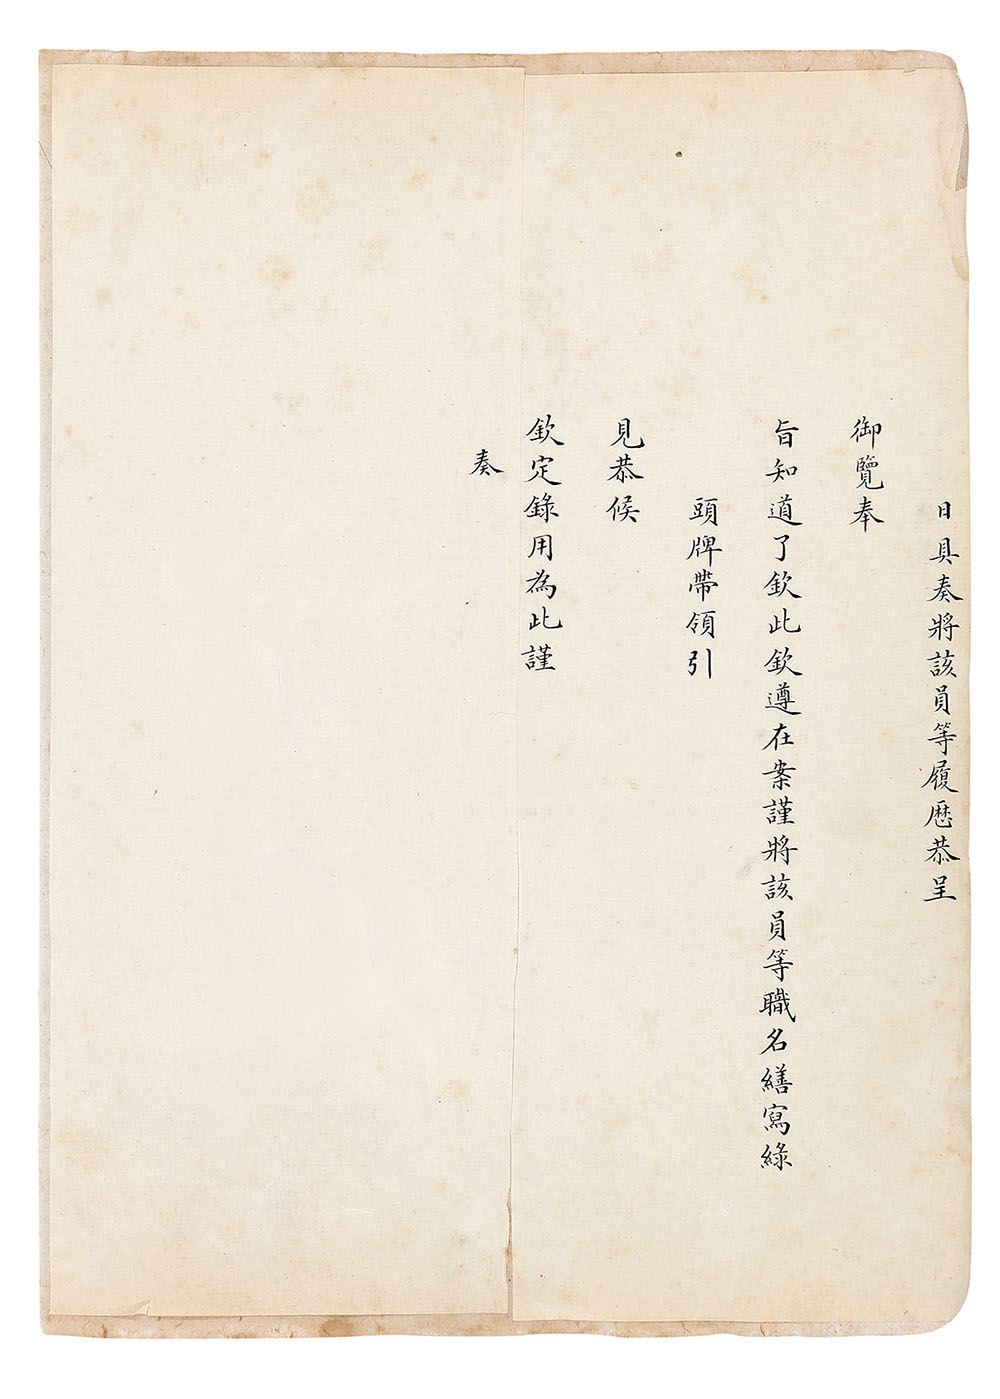 日具奏將該員等履歷恭呈
御覽奉
旨知道了欽此欽遵在案謹將該員等職名繕寫綠
頭牌帶領引
見恭候
欽定錄用為此謹
奏